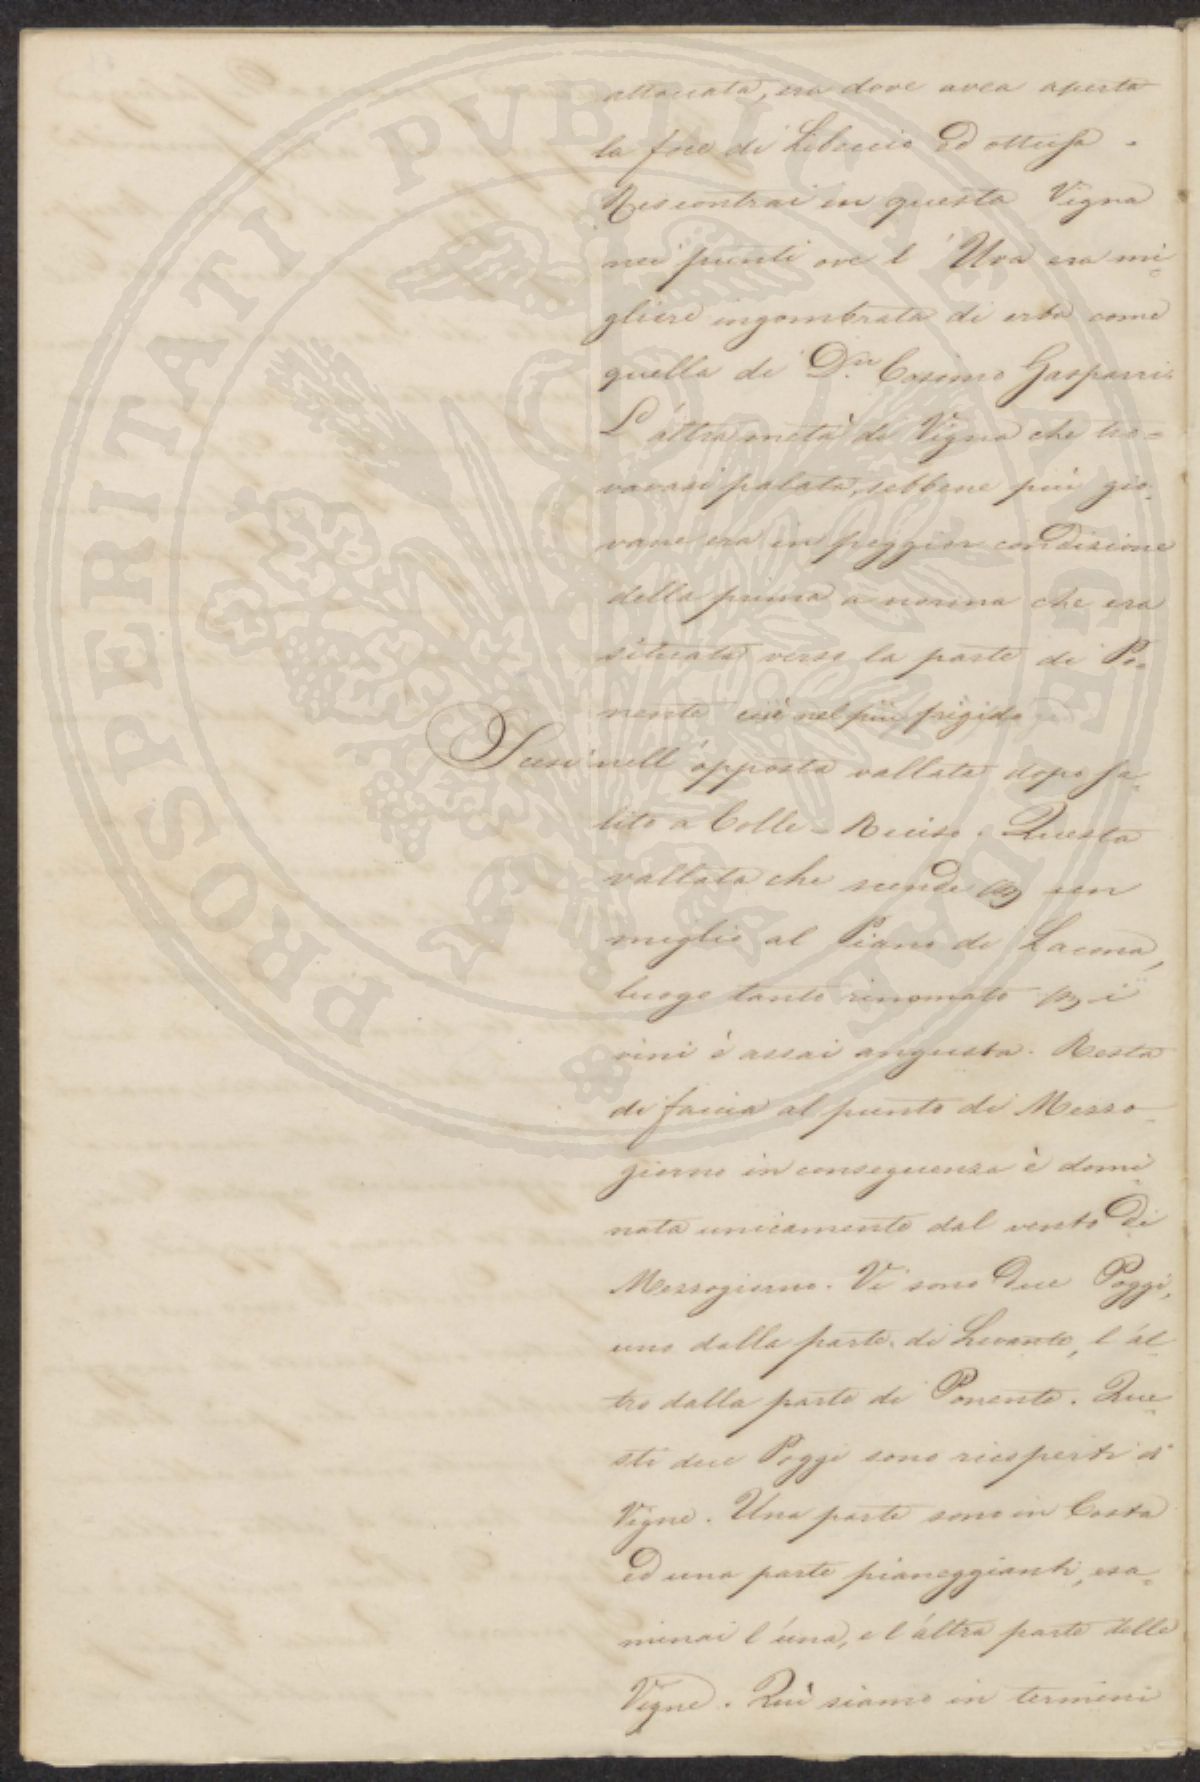 attaccata, era dove avea aperta
la foce di Liboccio ed ottusa.
Riscontrai in questa Vigna
nei punti ove l'Uva era mi=
gliore ingombrata di erba come
quella di D.n Cosimo Gasparri.
L'altra metà di Vigna che tro=
vavasi palata, sebbene più gio=
vane era in peggior condizione
della prima a norma che era
situata verso la parte di Po=
nente cioè nel più frigido
Scesi nell'opposta vallata dopo sa=
lito a Colle=Reciso. Questa
vallata che scende per un
miglio al Piano di Lacona,
luogo tanto rinomato per i
vini è assai angusta. Resta
di faccia al punto di Mezzo=
giorno in conseguenza è domi=
nata unicamente dal vento di
Mezzogiorno. Vi sono due Poggi,
uno dalla parte di Levante, l'al=
tro dalla parte di Ponente. Que=
sti due Poggi sono ricoperti di
Vigne. Una parte sono in Costa
ed una parte pianeggianti, esa=
minai l'una, e l'altra parte delle
Vigne. Quì siamo in termini
PROSPERITATI PVBLICAE AVGENDAE